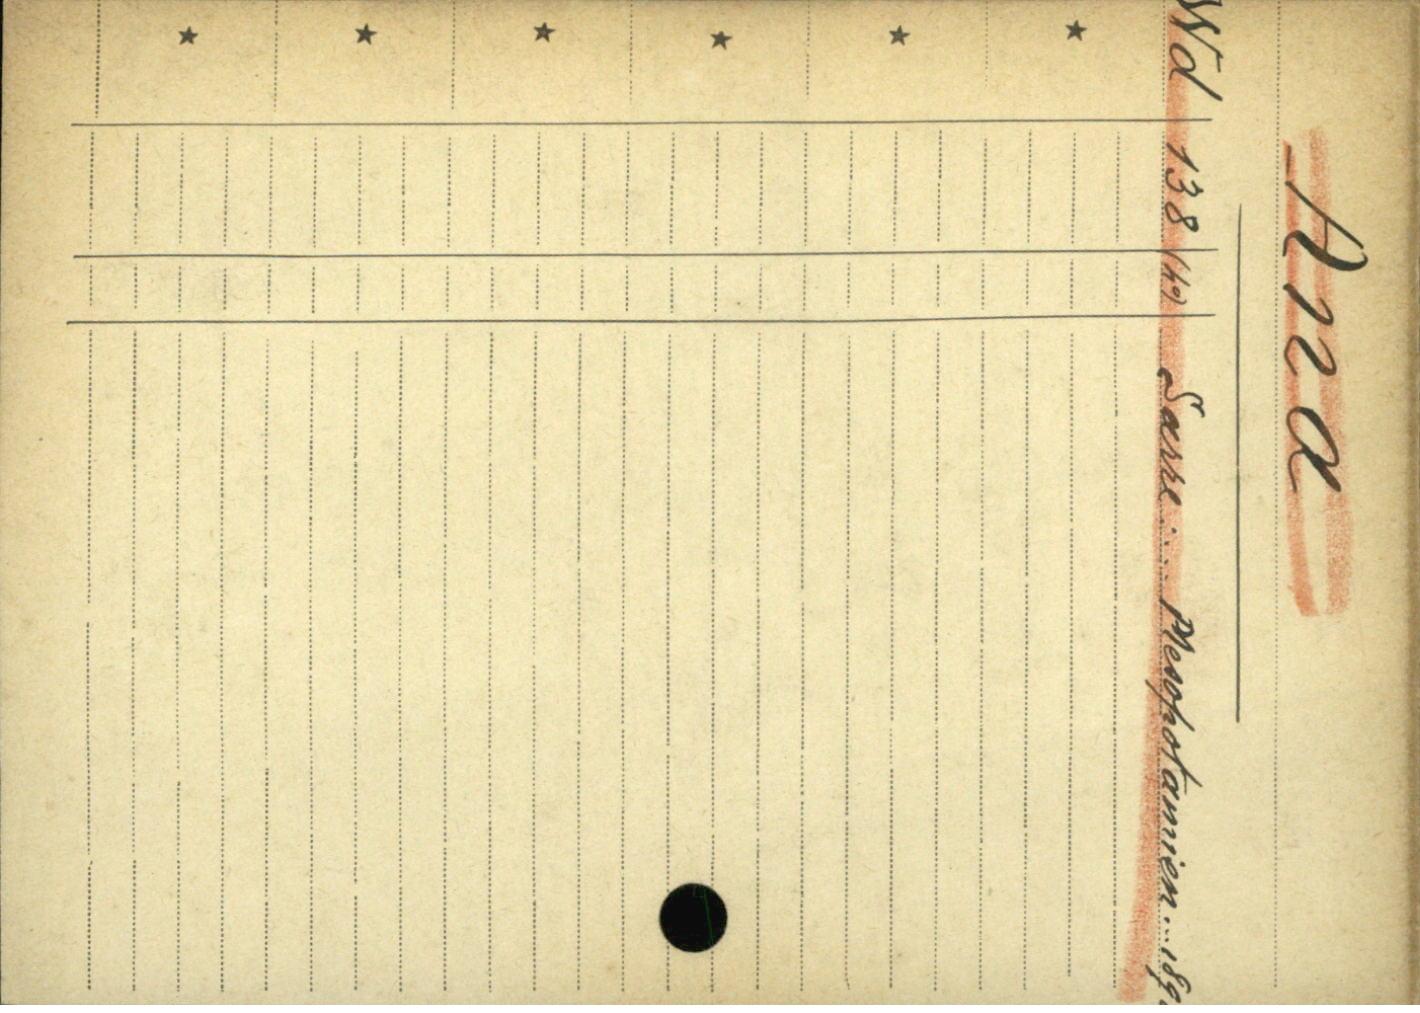 Ana
Wd 138 (4°) Sarre: ... Mesopotamien ... 189